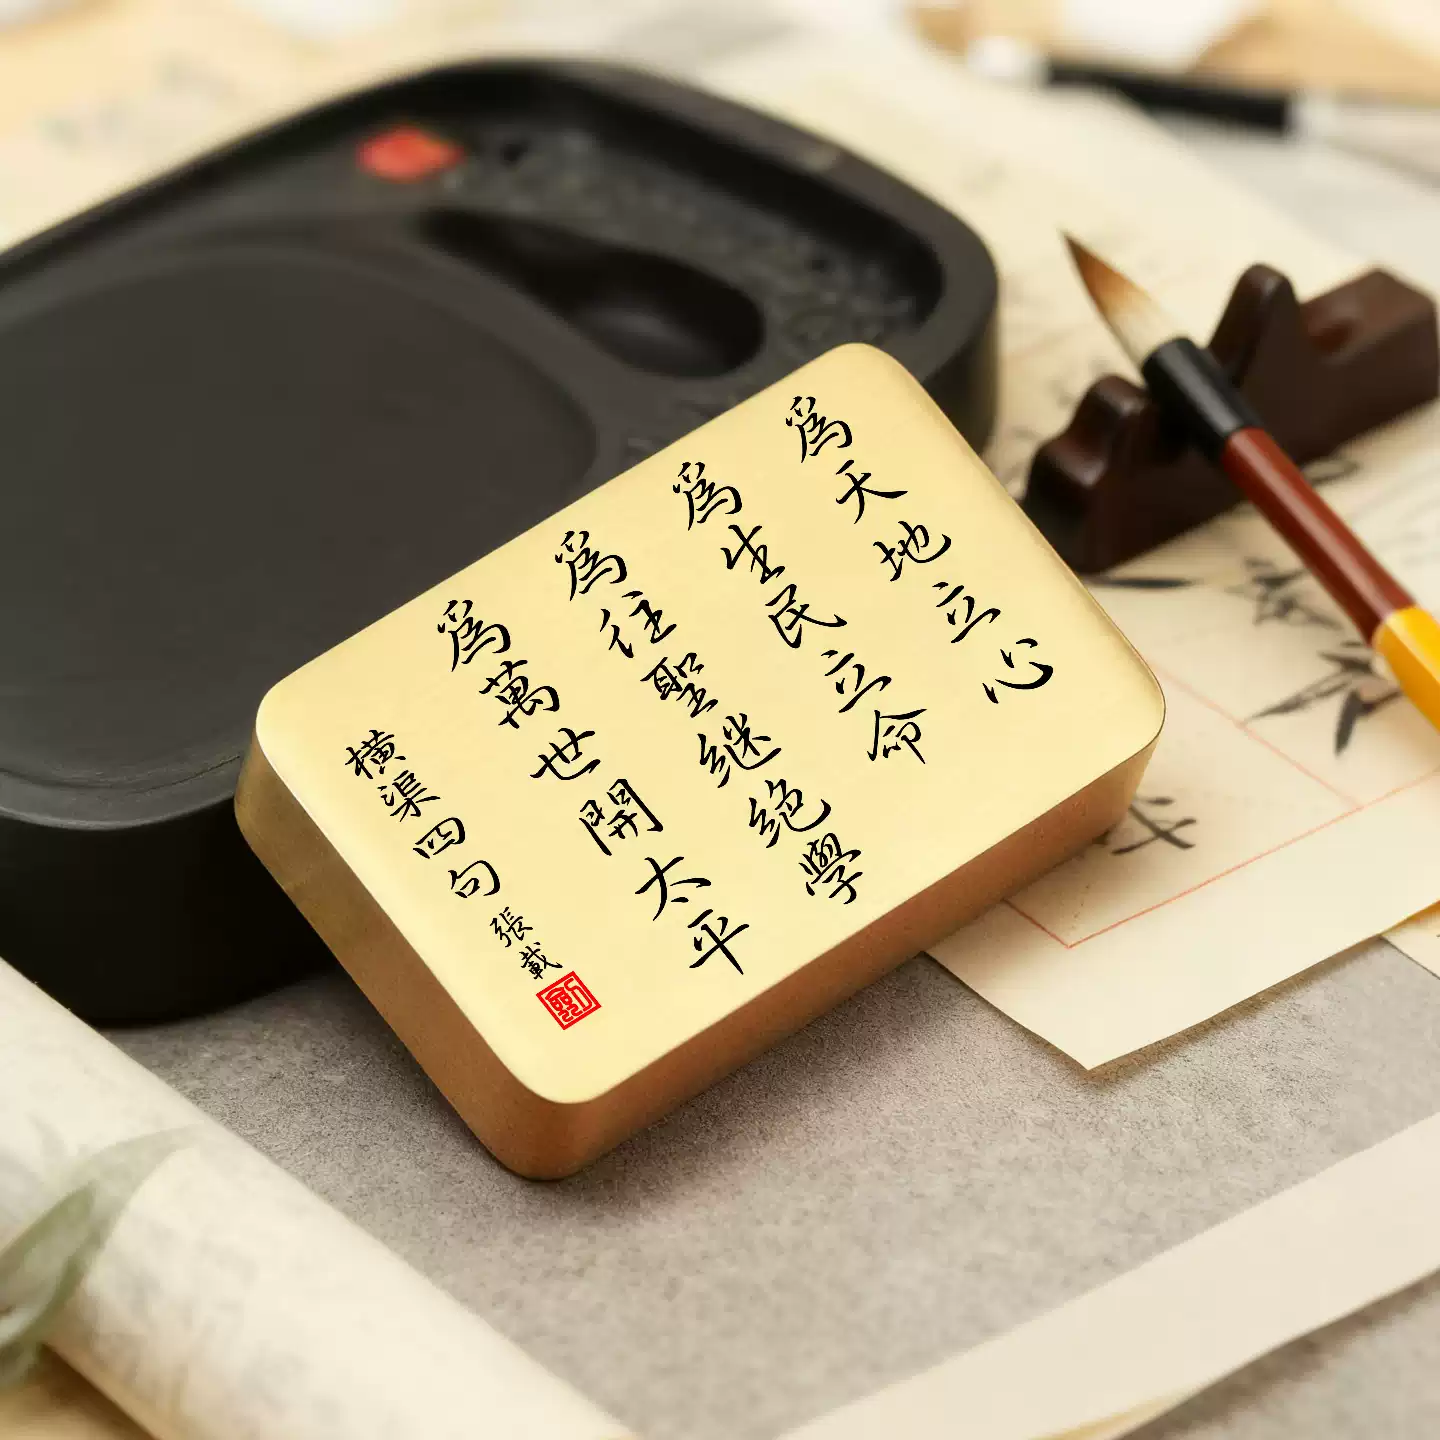 爲天地立心
爲生民立命
爲往聖继絕學
爲萬世開太平
橫渠四句
張載